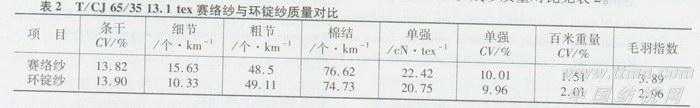 表 2 T/CJ 65/35 13.1 tex 赛络纱与环锭纱质量对比
项 目 条干 CV/% 细节 /个·km⁻¹ 粗节 /个·km⁻¹ 棉结 /个·km⁻¹ 单强 /cN·tex⁻¹ 单强 CV/% 百米重量 CV/% 毛羽指数
赛络纱 13.82 15.63 48.5 76.62 22.42 10.01 1.51 3.89
环锭纱 13.90 10.33 49.11 74.73 20.75 9.96 2.01 2.96